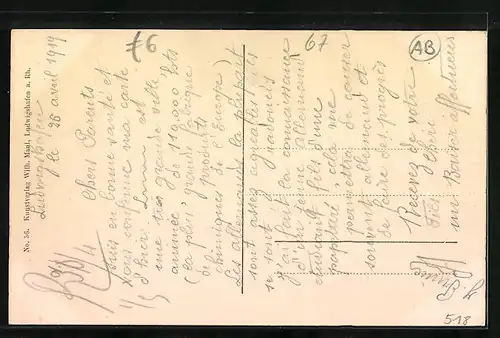 £6
67
AB
No. 56. Kunstverlag Wilh. Magl, Ludwigshafen a. Rh.
Ludwigshafen
le 28 avril 1919
Chers Parents
Suis en bonne santé et
vous confirme ma carte
d'hier.
une très grande ville
animée de 110.000 hts
(la plus grande fabrique
de produits
chimiques de l'Europe)
Les allemands la plupart
sont assez agréables ils
se sont radoucis
J'ai fait la connaissance
d'un jeune allemand
étudiant fils d'une
papeterie cela me
permettra de causer
souvent allemand et
de faire des progrès
Recevez de votre
Fils Chéri
un Baiser affectueux
518